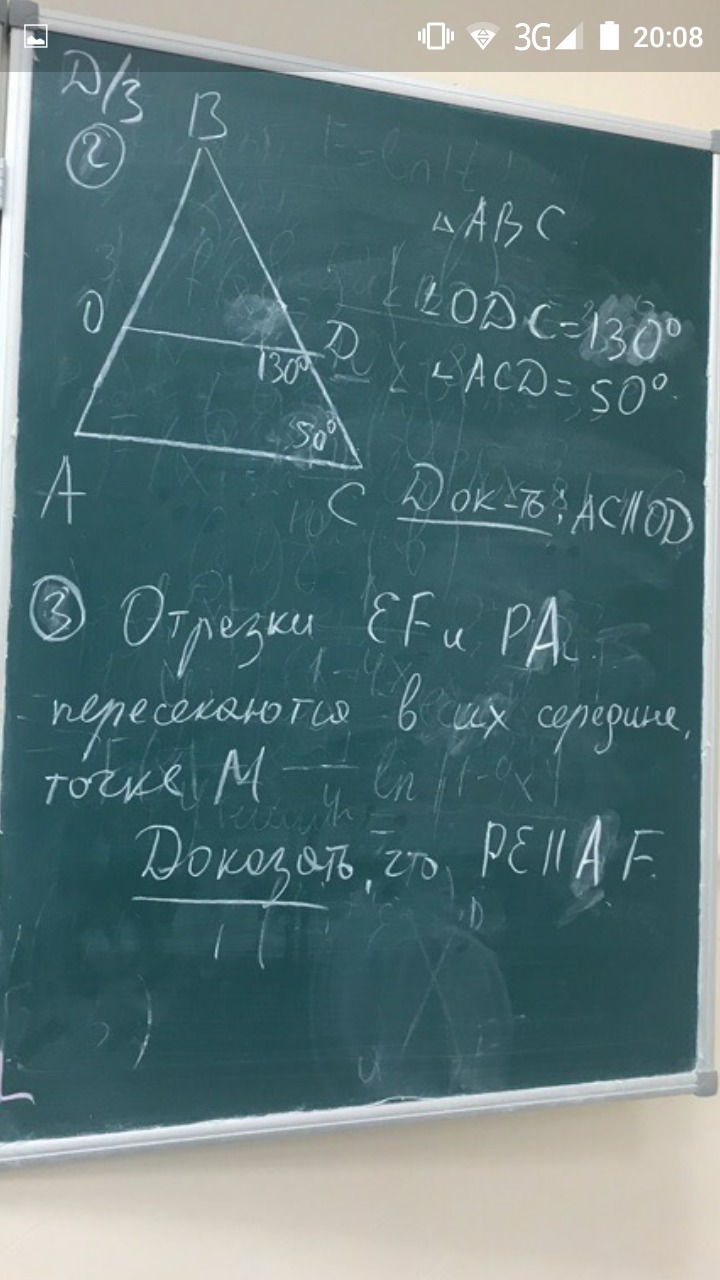 3G 20:08
Д/З
2
B
△ABC
O
D
∠ODC=130°
130°
∠ACD=50°
50°
A
C
Док-ть: AC||OD
3 Отрезки EF и PA
пересекаются в их середине,
точке M
Доказать, что PE||AF